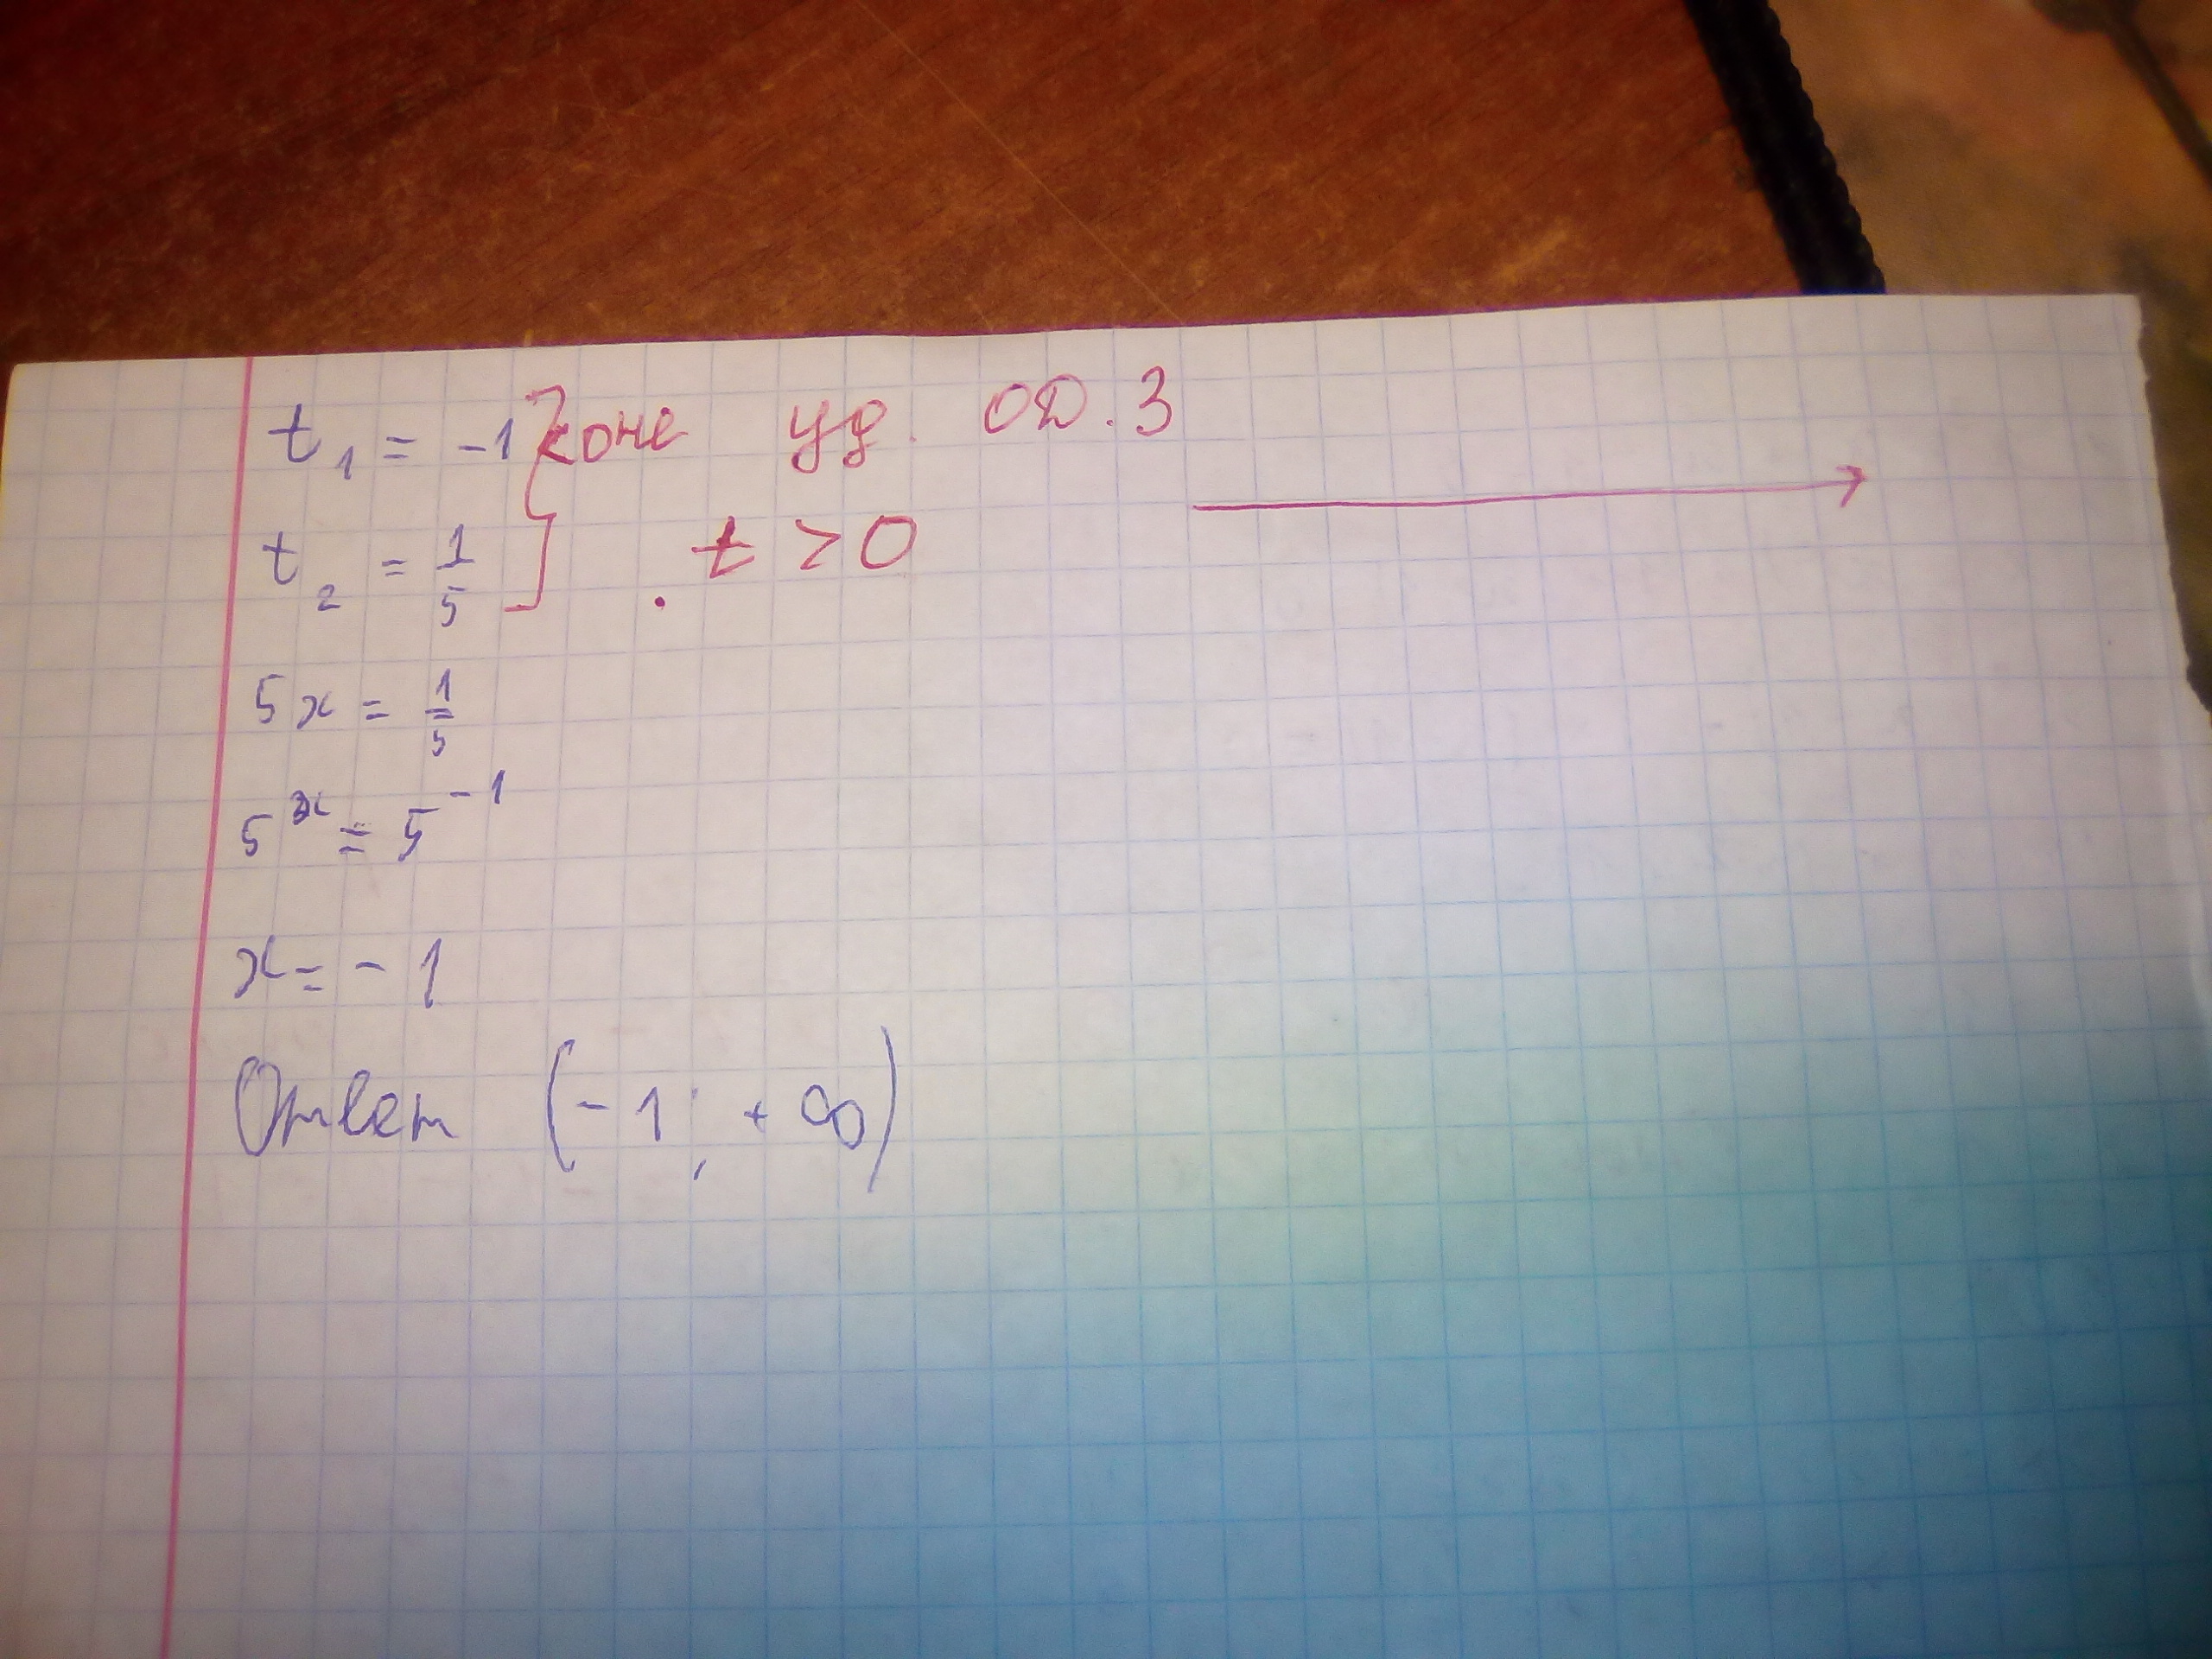 t₁ = -1 не уд. ОД.З
t₂ = 1/5 t > 0
5x = 1/5
5^x = 5^-1
x = - 1
Ответ (-1; + ∞)